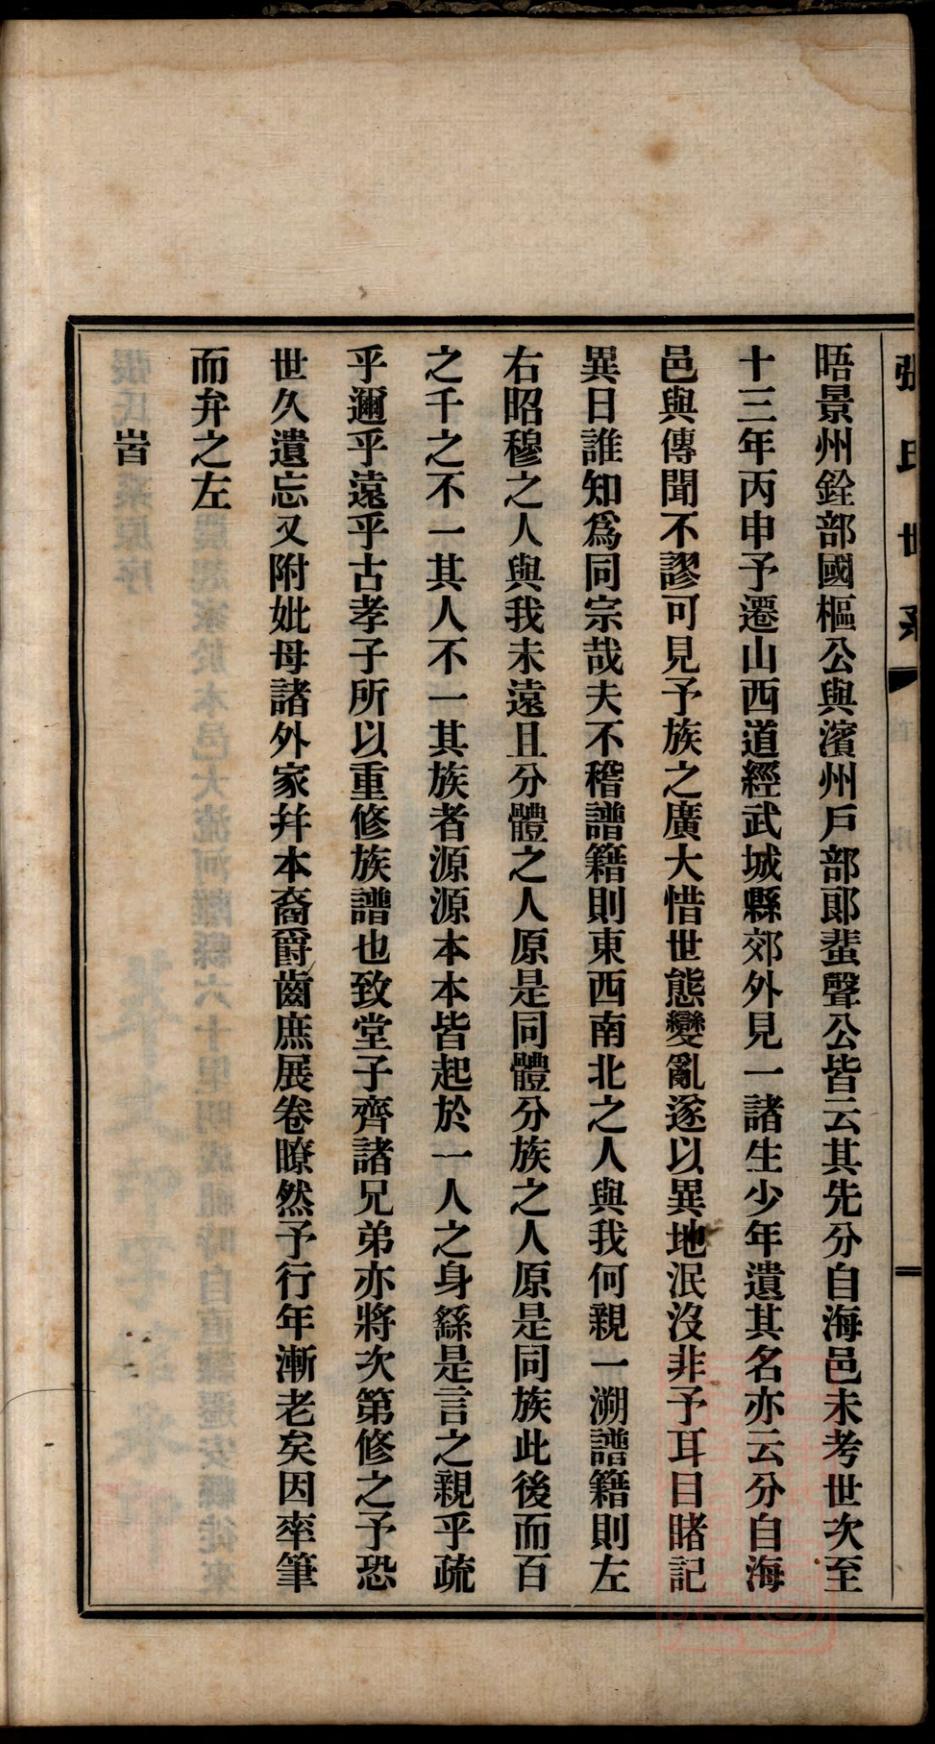 張氏世系
晤景州銓部國樞公與濱州戶部郎蜚聲公皆云其先分自海邑未考世次至
十三年丙申予遷山西道經武城縣郊外見一諸生少年遺其名亦云分自海
邑與傳聞不謬可見予族之廣大惜世態變亂遂以異地泯沒非予耳目睹記
異日誰知爲同宗哉夫不稽譜籍則東西南北之人與我何親一溯譜籍則左
右昭穆之人與我未遠且分體之人原是同體分族之人原是同族此後而百
之千之不一其人不一其族者源源本本皆起於一人之身繇是言之親乎疏
乎邇乎遠乎古孝子所以重修族譜也致堂子齊諸兄弟亦將次第修之予恐
世久遺忘又附妣母諸外家幷本裔爵齒庶展卷瞭然予行年漸老矣因率筆
而弁之左
旹